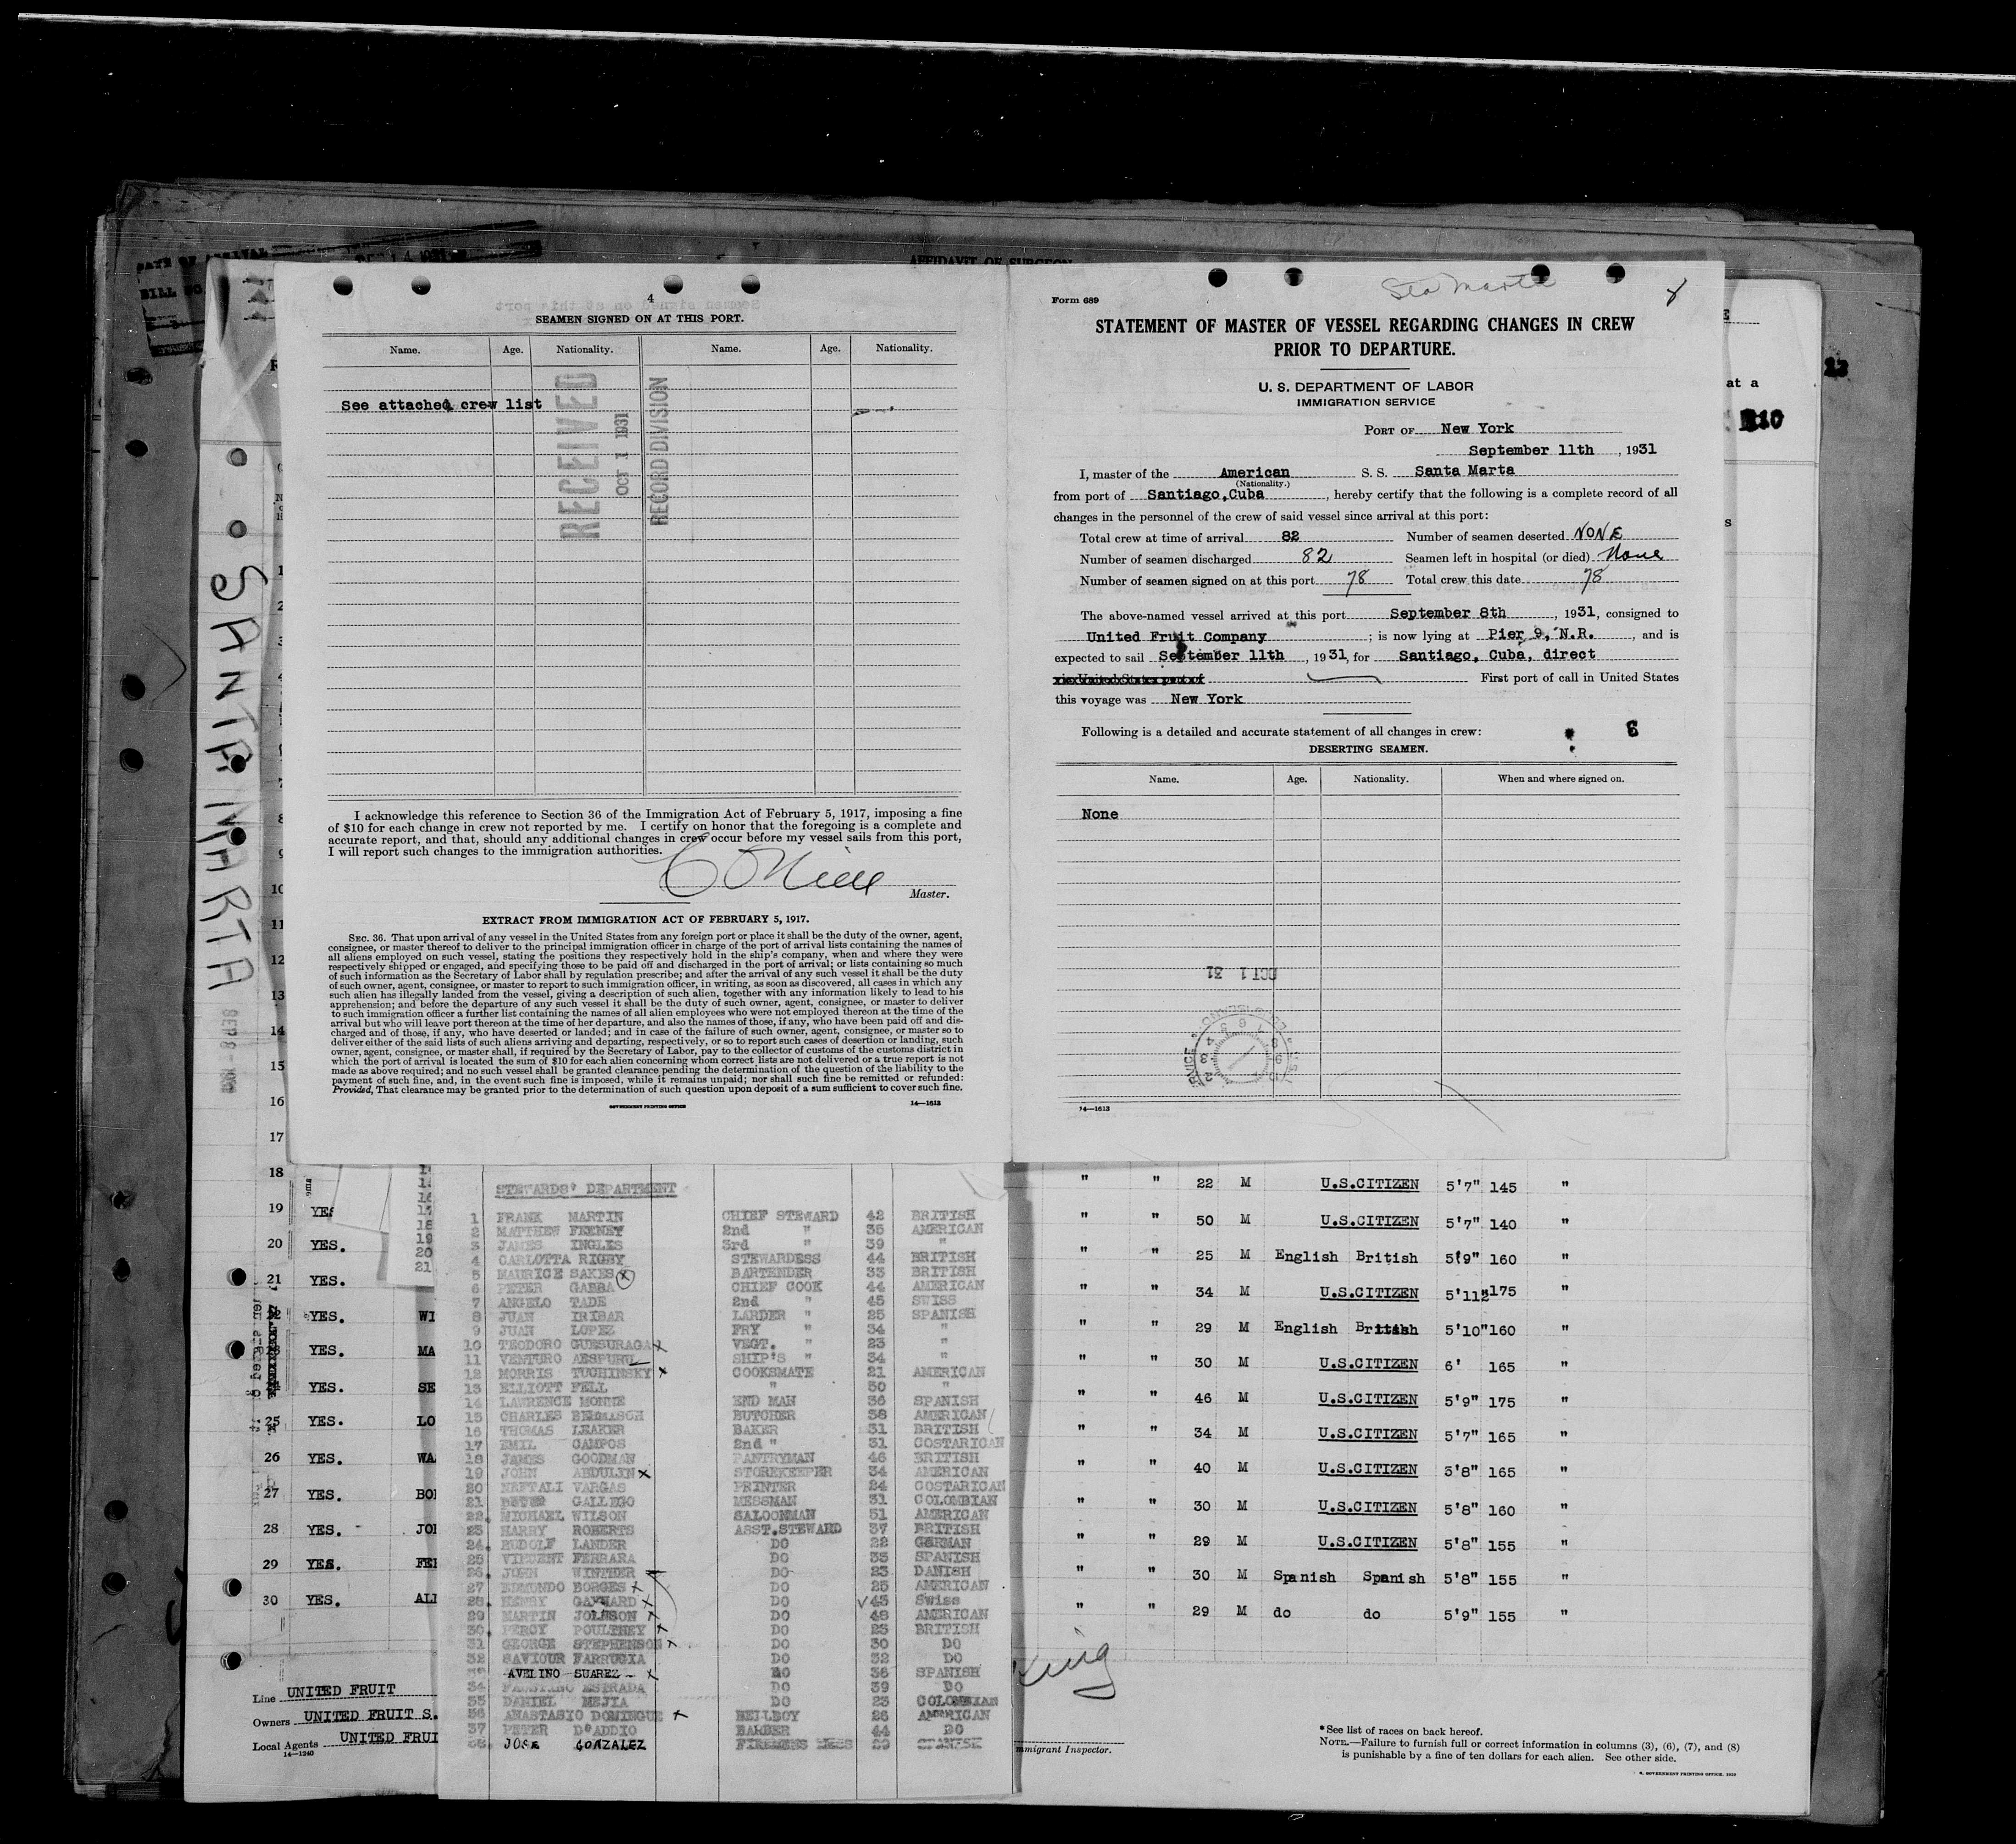 4
SEAMEN SIGNED ON AT THIS PORT.
Name. Age. Nationality. Name. Age. Nationality.
See attached crew list
RECEIVED
OCT 1 1931
RECORD DIVISION
I acknowledge this reference to Section 36 of the Immigration Act of February 5, 1917, imposing a fine
of $10 for each change in crew not reported by me. I certify on honor that the foregoing is a complete and
accurate report, and that, should any additional changes in crew occur before my vessel sails from this port,
I will report such changes to the immigration authorities.
Master.
EXTRACT FROM IMMIGRATION ACT OF FEBRUARY 5, 1917.
SEC. 36. That upon arrival of any vessel in the United States from any foreign port or place it shall be the duty of the owner, agent,
consignee, or master thereof to deliver to the principal immigration officer in charge of the port of arrival lists containing the names of
all aliens employed on such vessel, stating the positions they respectively hold in the ship's company, when and where they were
respectively shipped or engaged, and specifying those to be paid off and discharged in the port of arrival; or lists containing so much
of such information as the Secretary of Labor shall by regulation prescribe; and after the arrival of any such vessel it shall be the duty
of such owner, agent, consignee, or master to report to such immigration officer, in writing, as soon as discovered, all cases in which any
such alien has illegally landed from the vessel, giving a description of such alien, together with any information likely to lead to his
apprehension; and before the departure of any such vessel it shall be the duty of such owner, agent, consignee, or master to deliver
to such immigration officer a further list containing the names of all alien employees who were not employed thereon at the time of the
arrival but who will leave port thereon at the time of her departure, and also the names of those, if any, who have been paid off and dis-
charged and of those, if any, who have deserted or landed; and in case of the failure of such owner, agent, consignee, or master so to
deliver either of the said lists of such aliens arriving and departing, respectively, or so to report such cases of desertion or landing, such
owner, agent, consignee, or master shall, if required by the Secretary of Labor, pay to the collector of customs of the customs district in
which the port of arrival is located the sum of $10 for each alien concerning whom correct lists are not delivered or a true report is not
made as above required; and no such vessel shall be granted clearance pending the determination of the question of the liability to the
payment of such fine, and, in the event such fine is imposed, while it remains unpaid; nor shall such fine be remitted or refunded:
Provided, That clearance may be granted prior to the determination of such question upon deposit of a sum sufficient to cover such fine.
GOVERNMENT PRINTING OFFICE 14—1613
Form 689
Sta Marta
STATEMENT OF MASTER OF VESSEL REGARDING CHANGES IN CREW
PRIOR TO DEPARTURE.
U. S. DEPARTMENT OF LABOR
IMMIGRATION SERVICE
PORT OF New York
September 11th, 1931
I, master of the American S. S. Santa Marta
(Nationality.)
from port of Santiago,Cuba, hereby certify that the following is a complete record of all
changes in the personnel of the crew of said vessel since arrival at this port:
Total crew at time of arrival 82 Number of seamen deserted NONE
Number of seamen discharged 82 Seamen left in hospital (or died) None
Number of seamen signed on at this port 78 Total crew this date 78
The above-named vessel arrived at this port September 8th, 1931, consigned to
United Fruit Company; is now lying at Pier 9, N.R., and is
expected to sail September 11th, 1931, for Santiago, Cuba, direct
First port of call in United States
this voyage was New York
Following is a detailed and accurate statement of all changes in crew: 6
DESERTING SEAMEN.
Name. Age. Nationality. When and where signed on.
None
OCT 1 31
14—1613
SANTA MARTA
STEWARDS' DEPARTMENT
1 FRANK MARTIN CHIEF STEWARD 42 BRITISH
2 MATTHEW FEENEY 2nd " 35 AMERICAN
3 JAMES INGLES 3rd " 39 "
4 CARLOTTA RIGBY STEWARDESS 44 BRITISH
5 MAURICE SAKES x BARTENDER 33 BRITISH
6 PETER GABBA CHIEF COOK 44 AMERICAN
7 ANGELO TADE 2nd " 45 SWISS
8 JUAN IRIBAR LARDER " 25 SPANISH
9 JUAN LOPEZ FRY " 34 "
10 TEODORO GUESURAGA x VEGT. " 23 "
11 VENTURO AESPURU SHIP'S " 34 "
12 MORRIS TUCHINSKY x COOKSMATE 21 AMERICAN
13 ELLIOTT FELL " 50 "
14 LAWRENCE MONNE END MAN 36 SPANISH
15 CHARLES BEHMASCH BUTCHER 38 AMERICAN
16 THOMAS LEAKER BAKER 31 BRITISH
17 EMIL CAMPOS 2nd " 31 COSTARICAN
18 JAMES GOODMAN PANTRYMAN 46 BRITISH
19 JOHN ABDULIN x STOREKEEPER 34 AMERICAN
20 NEFTALI VARGAS PRINTER 24 COSTARICAN
21 PETER GALLEGO MESSMAN 31 COLOMBIAN
22. MICHAEL WILSON SALOONMAN 51 AMERICAN
23 HARRY ROBERTS ASST.STEWARD 37 BRITISH
24. RUDOLF LANDER DO 22 GERMAN
25 VINCENT FERRARA DO 35 SPANISH
26. JOHN WINTHER DO 23 DANISH
27 EDMUNDO BORGES x DO 25 AMERICAN
28. HENRY GAYHARD x DO 43 Swiss
29 MARTIN JOHNSON x DO 48 AMERICAN
30. PERCY POULTNEY x DO 23 BRITISH
31 GEORGE STEPHENSON x DO 30 DO
32 SAVIOUR FARRUGIA DO 32 DO
AVELINO SUAREZ x DO 36 SPANISH
34 FAUSTINO ESTRADA DO 39 DO
35 DANIEL MEJIA DO 23 COLOMBIAN
36 ANASTASIO DOMINGUE x BELLBOY 26 AMERICAN
37 PETER D'ADDIO BARBER 44 DO
38. JOSE GONZALEZ FIREMENS MESS 29 SPANISH
18
19 YES
20 YES.
21 YES.
YES. WI
YES. MA
YES. SE
25 YES. LO
26 YES. WA
27 YES. BO
28 YES. JO
29 YES. FE
30 YES. AL
" " 22 M U.S.CITIZEN 5'7" 145 "
" " 50 M U.S.CITIZEN 5'7" 140 "
" " 25 M English British 5'9" 160 "
" " 34 M U.S.CITIZEN 5'11" 175 "
" " 29 M English British 5'10" 160 "
" " 30 M U.S.CITIZEN 6' 165 "
" " 46 M U.S.CITIZEN 5'9" 175 "
" " 34 M U.S.CITIZEN 5'7" 165 "
" " 40 M U.S.CITIZEN 5'8" 165 "
" " 30 M U.S.CITIZEN 5'8" 160 "
" " 29 M U.S.CITIZEN 5'8" 155 "
" " 30 M Spanish Spanish 5'8" 155 "
" " 29 M do do 5'9" 155 "
Line UNITED FRUIT
Owners UNITED FRUIT S.
Local Agents UNITED FRUI
14—1240
mmigrant Inspector.
*See list of races on back hereof.
NOTE.—Failure to furnish full or correct information in columns (3), (6), (7), and (8)
is punishable by a fine of ten dollars for each alien. See other side.